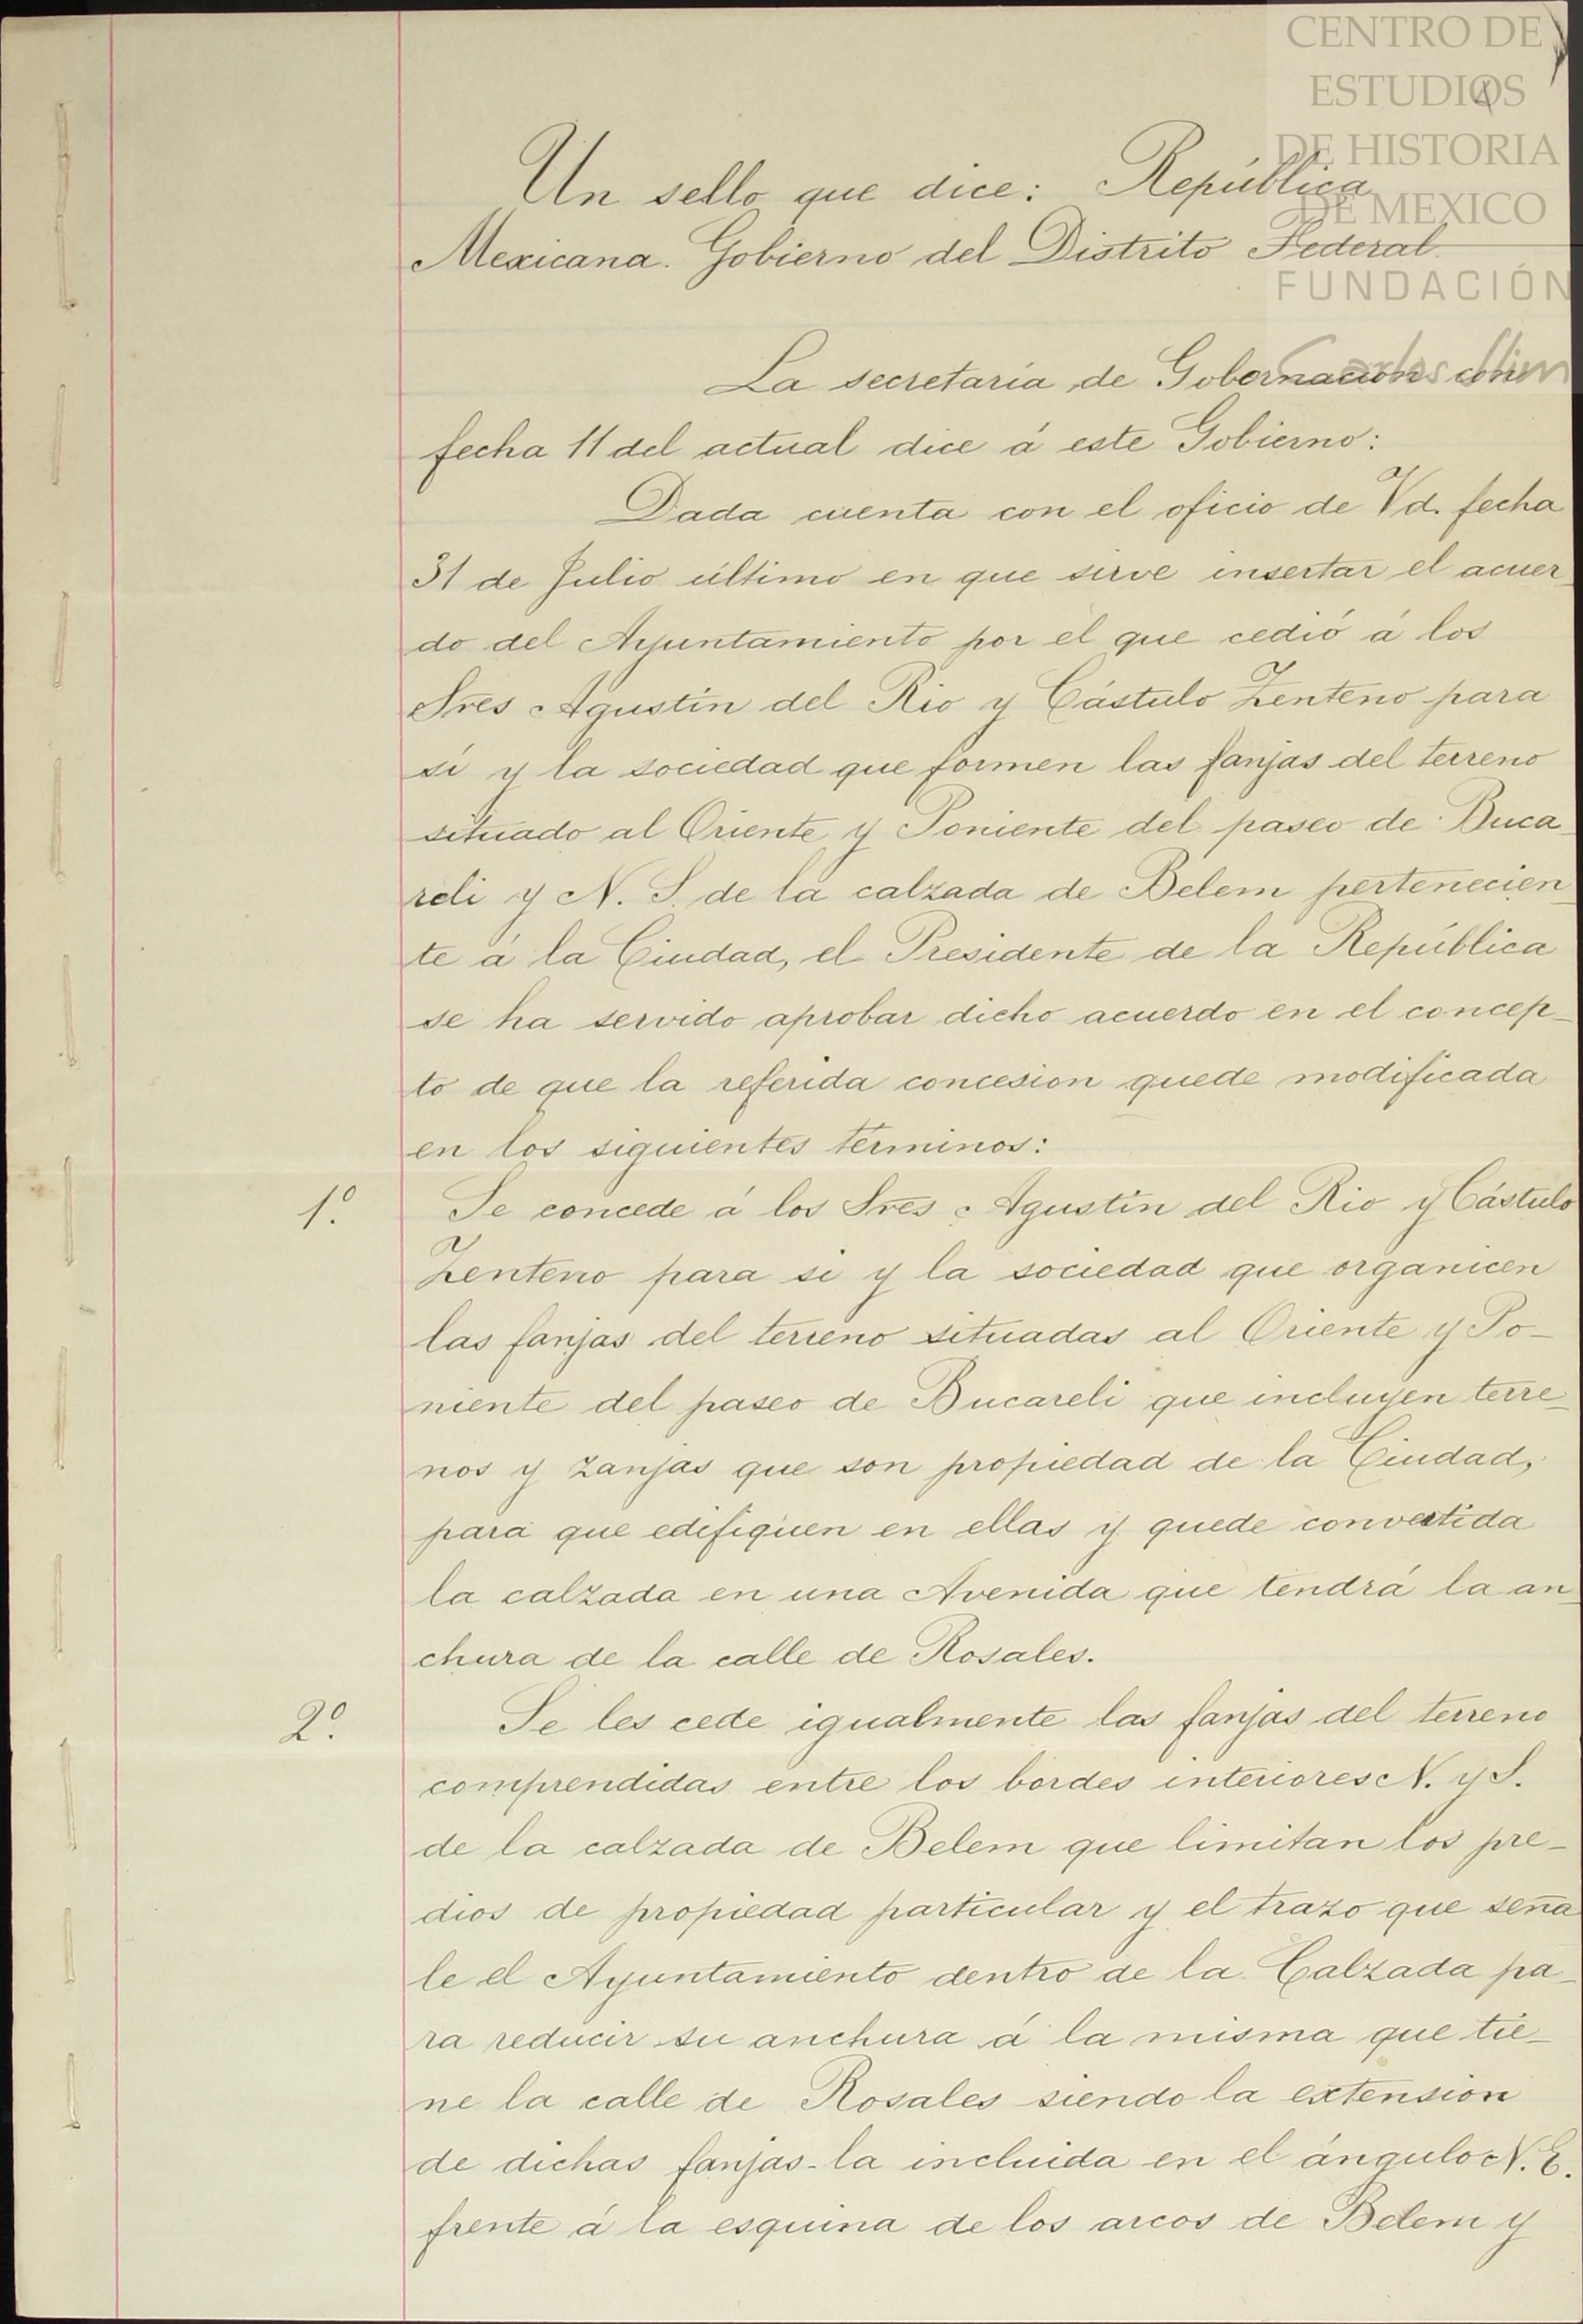 CENTRO DE
ESTUDIOS
DE HISTORIA
DE MEXICO
FUNDACIÓN
Carlos Slim
Un sello que dice: República
Mexicana. Gobierno del Distrito Federal.
La secretaría de Gobernacion con
fecha 11 del actual dice á este Gobierno:
Dada cuenta con el oficio de Vd. fecha
31 de Julio último en que sirve insertar el acuer
do del Ayuntamiento por el que cedió á los
Sres Agustin del Rio y Cástulo Zenteno para
si y la sociedad que formen las fanjas del terreno
situado al Oriente y Poniente del paseo de Buca
reli y N. S. de la calzada de Belem pertenecien
te á la Ciudad, el Presidente de la República
se ha servido aprobar dicho acuerdo en el concep_
to de que la referida concesion quede modificada
en los siguientes términos:
1º. Se concede á los Sres Agustin del Rio y Cástulo
Zenteno para si y la sociedad que organicen
las fanjas del terreno situadas al Oriente y Po_
niente del paseo de Bucareli que incluyen terre_
nos y zanjas que son propiedad de la Ciudad,
para que edifiquen en ellas y quede convertida
la calzada en una Avenida que tendrá la an_
chura de la calle de Rosales.
2º. Se les cede igualmente las fanjas del terreno
comprendidas entre los bordes interiores N. y S.
de la calzada de Belem que limitan los pre_
dios de propiedad particular y el trazo que seña
le el Ayuntamiento dentro de la Calzada pa_
ra reducir su anchura á la misma que tie_
ne la calle de Rosales siendo la extension
de dichas fanjas la incluida en el ángulo N. E.
frente á la esquina de los arcos de Belem y